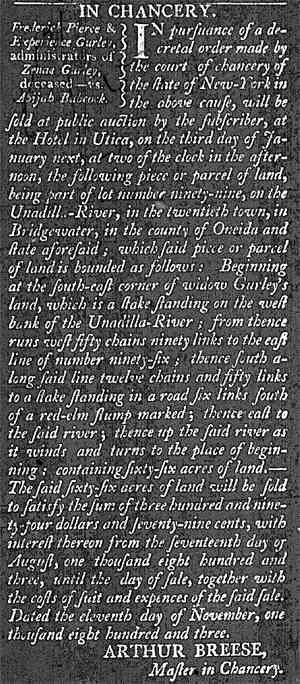 IN CHANCERY.
Frederick Pierce &
Experience Gurley,
administrators of
Zenas Gurley,
deceased—vs.
Abijah Babcock.
IN pursuance of a de-
cretal order made by
the court of chancery of
the ſtate of New-York in
the above cauſe, will be
ſold at public auction by the ſubſcriber, at
the Hotel in Utica, on the third day of Ja-
nuary next, at two of the clock in the after-
noon, the following piece or parcel of land,
being part of lot number ninety-nine, on the
Unadill.-River, in the twentieth town, in
Bridgewater, in the county of Oneida and
ſtate aforeſaid; which ſaid piece or parcel
of land is bounded as follows: Beginning
at the ſouth-eaſt corner of widow Gurley's
land, which is a ſtake ſtanding on the weſt
bank of the Unadilla-River; from thence
runs weſt fifty chains ninety links to the eaſt
line of number ninety-ſix; thence ſouth a-
long ſaid line twelve chains and fifty links
to a ſtake ſtanding in a road ſix links ſouth
of a red-elm ſtump marked; thence eaſt to
the ſaid river; thence up the ſaid river as
it winds and turns to the place of begin-
ning; containing ſixty-ſix acres of land.—
The ſaid ſixty-ſix acres of land will be ſold
to ſatisfy the ſum of three hundred and nine-
ty-four dollars and ſeventy-nine cents, with
intereſt thereon from the ſeventeenth day of
Auguſt, one thouſand eight hundred and
three, until the day of ſale, together with
the coſts of ſuit and expences of the ſaid ſale.
Dated the eleventh day of November, one
thouſand eight hundred and three.
ARTHUR BREESE,
Maſter in Chancery.